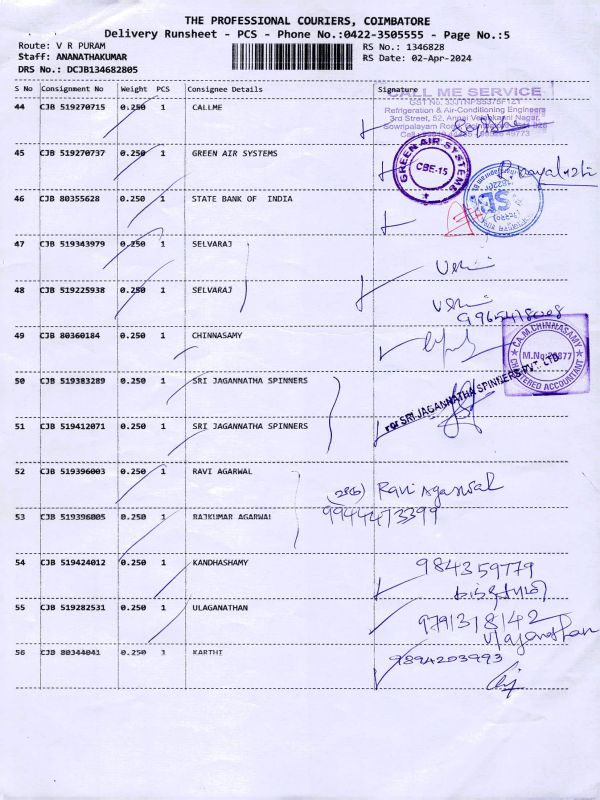 THE PROFESSIONAL COURIERS, COIMBATORE
Delivery Runsheet - PCS - Phone No.:0422-3505555 - Page No.:5
Route: V R PURAM RS No.: 1346828
Staff: ANANATHAKUMAR RS Date: 02-Apr-2024
DRS No.: DCJB134682805
S No Consignment No Weight PCS Consignee Details Signature
CALL ME SERVICE
Refrigeration & Air-Conditioning Engineers
44 CJB 519270715 0.250 1 CALLME
45 CJB 519270737 0.250 1 GREEN AIR SYSTEMS
GREEN AIR SYSTEMS
CBE-15
46 CJB 80355628 0.250 1 STATE BANK OF INDIA
47 CJB 519343979 0.250 1 SELVARAJ
48 CJB 519225938 0.250 1 SELVARAJ
49 CJB 80360184 0.250 1 CHINNASAMY
CA.M.CHINNASAMY
CHARTERED ACCOUNTANT
50 CJB 519383289 0.250 1 SRI JAGANNATHA SPINNERS
For SRI JAGANNATHA SPINNERS PVT. LTD
51 CJB 519412071 0.250 1 SRI JAGANNATHA SPINNERS
52 CJB 519396003 0.250 1 RAVI AGARWAL
Ravi Agarwal
9944473399
53 CJB 519396005 0.250 1 RAJKUMAR AGARWAL
54 CJB 519424012 0.250 1 KANDHASHAMY
984359779
55 CJB 519282531 0.250 1 ULAGANATHAN
9791318142
Ulaganathan
56 CJB 80344041 0.250 1 KARTHI
9894203993